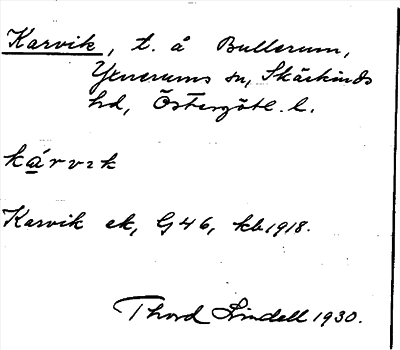 Karvik, t. å Bullerum,
Yxnerums sn, Skärkinds
hd, Östergötl. l.
kárvɩk
Karvik ek, G46, kb 1918.
Thord Lindell 1930.